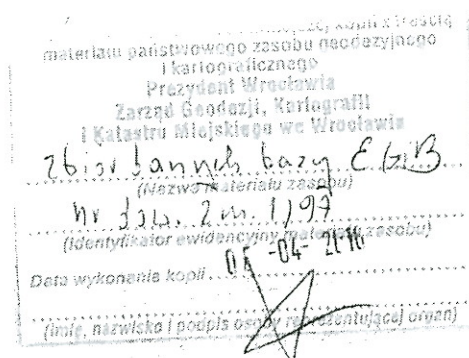 kopii z treścią
materiału państwowego zasobu geodezyjnego
i kartograficznego
Prezydent Wrocławia
Zarząd Geodezji, Kartografii
i Katastru Miejskiego we Wrocławiu
Zbiór danych bazy EGiB
(Nazwa materiału zasobu)
Nr 1/97
(Identyfikator ewidencyjny materiału zasobu)
Data wykonania kopii -04-
(imię, nazwisko i podpis osoby reprezentującej organ)